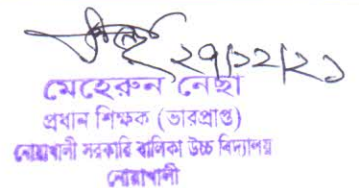 ২৭/১২/২১
মেহেরুন নেছা
প্রধান শিক্ষক (ভারপ্রাপ্ত)
নোয়াখালী সরকারি বালিকা উচ্চ বিদ্যালয়
নোয়াখালী